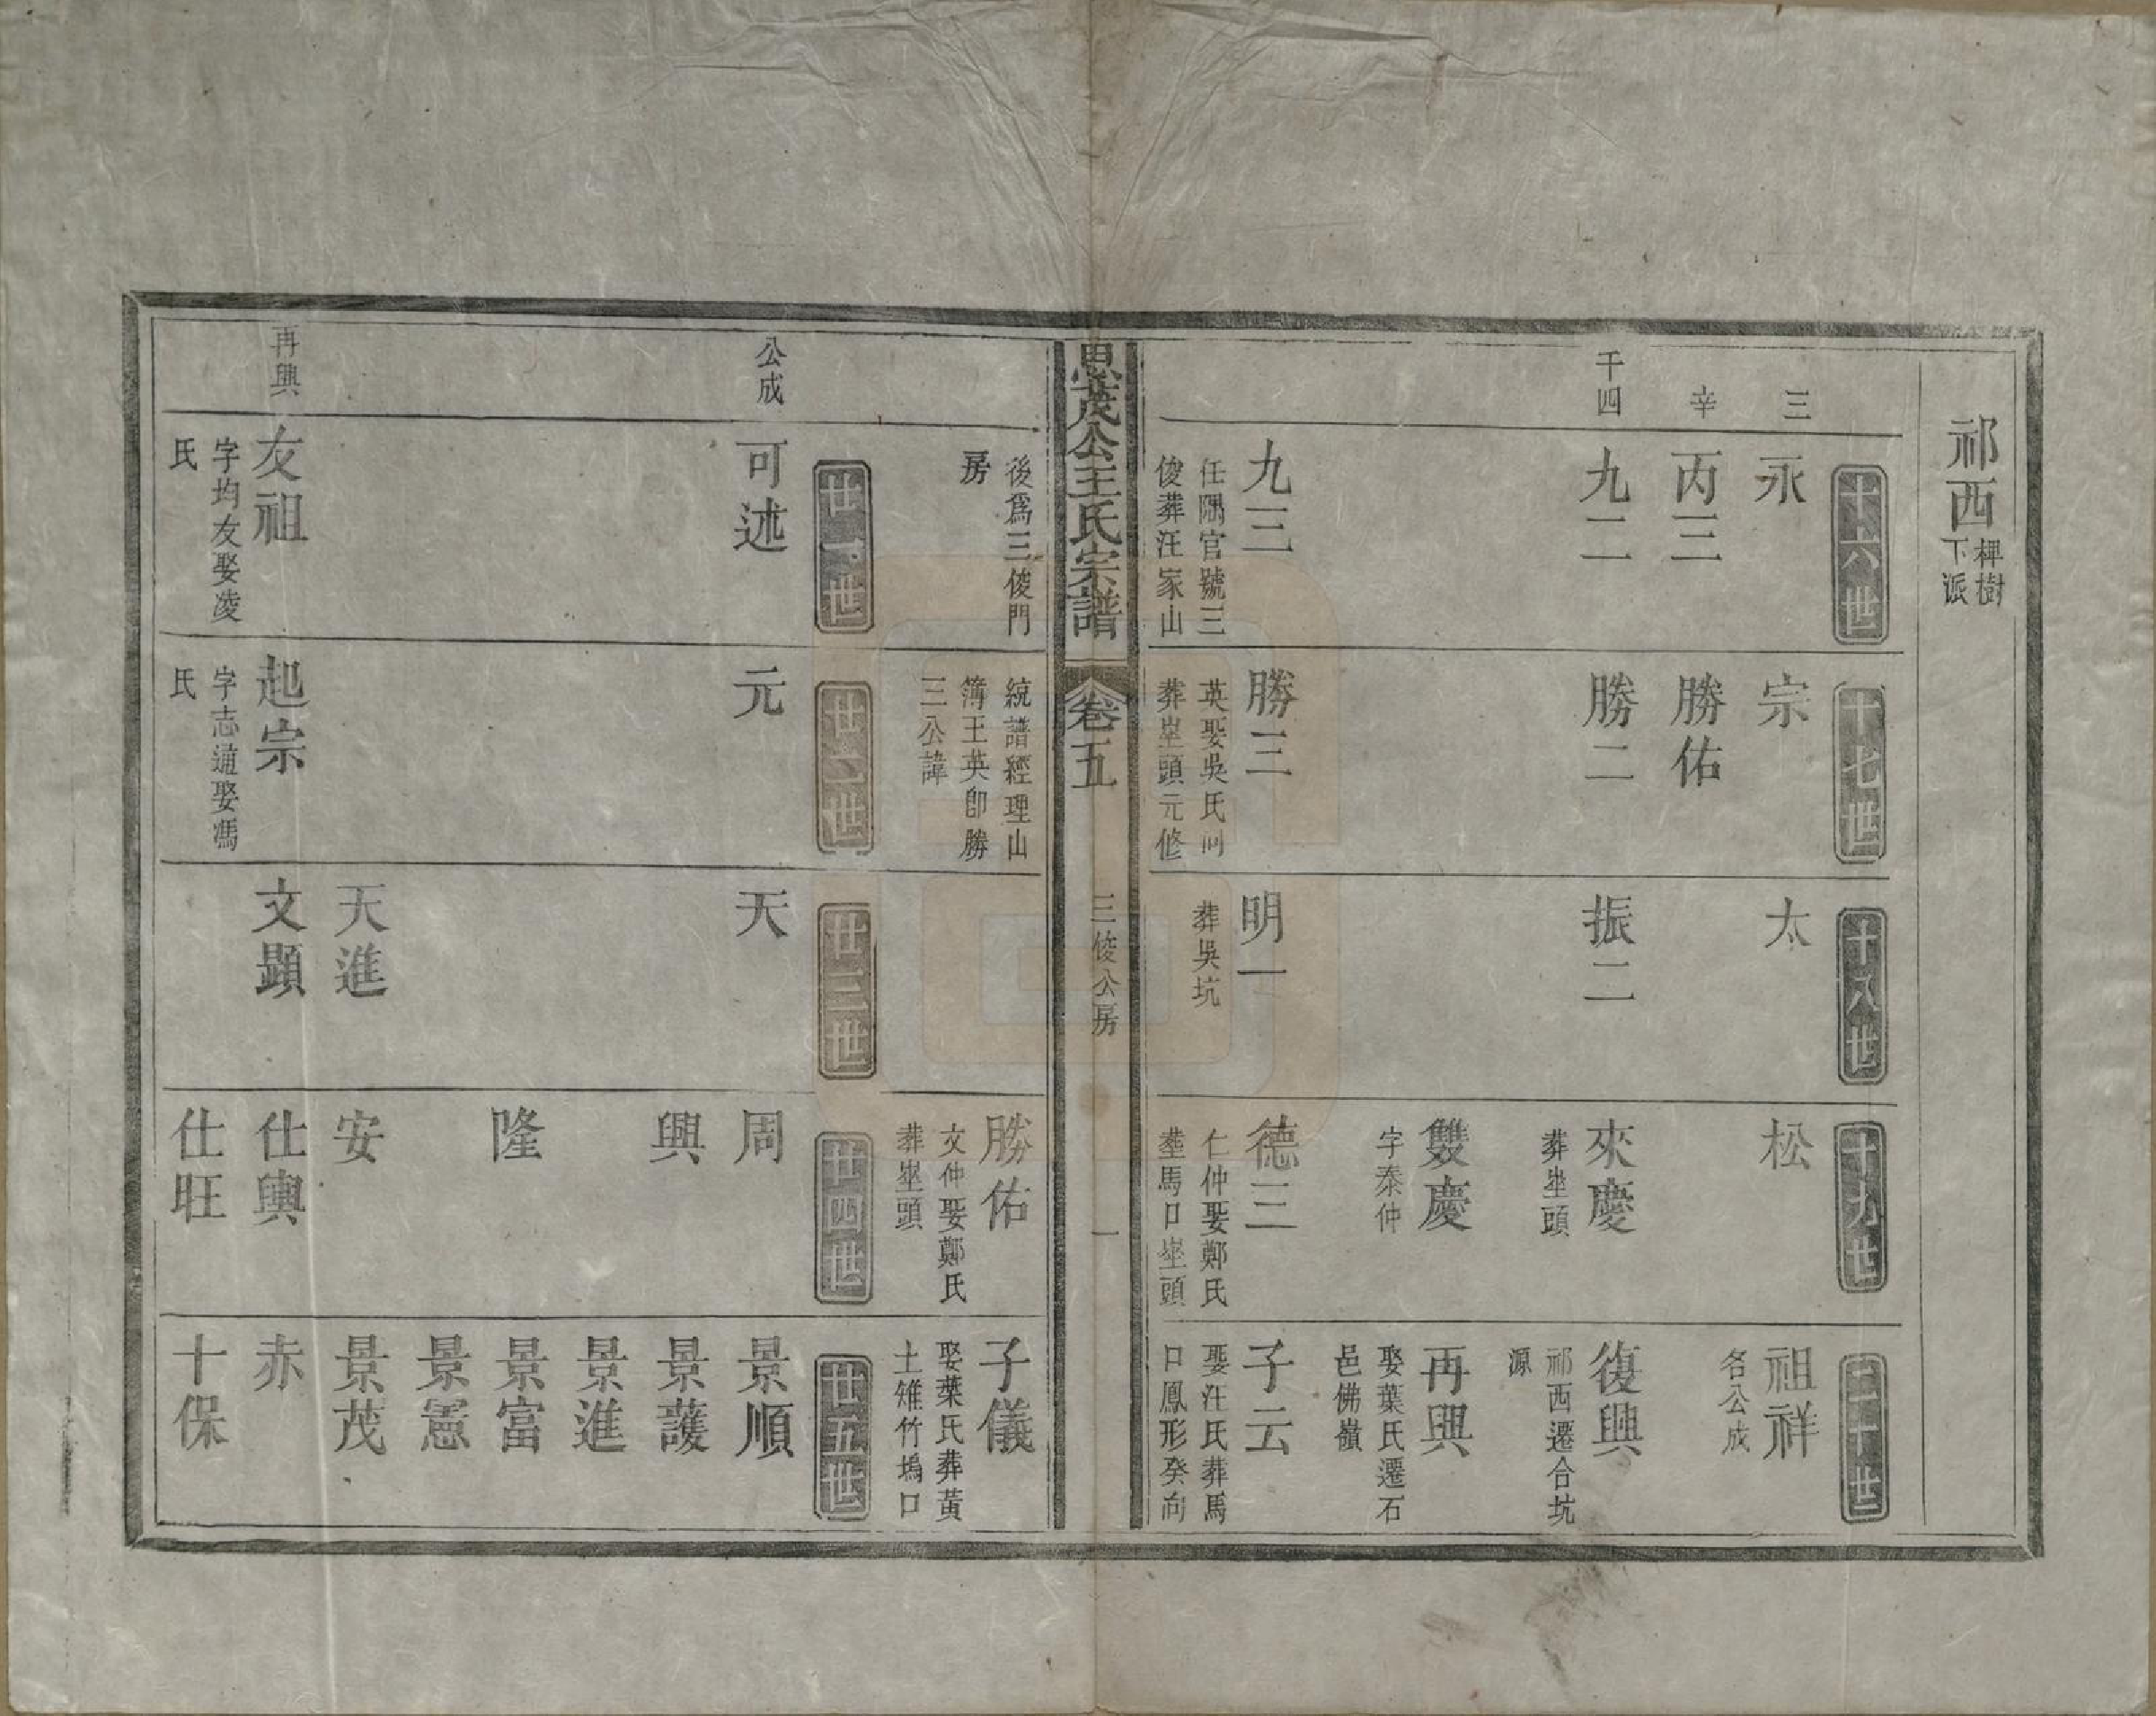 祁西
椑樹
下派
三
辛
千四
十六世
永
丙三
九二
九三
任隅官號三
俊葬汪家山
後爲三俊門
房
十七世
宗
勝佑
勝二
勝三
英娶吳氏同
葬垄頭元修
統譜經理山
簿王英卽勝
三公諱
十八世
太
振二
明一
葬吳坑
十九世
松
來慶
葬垄頭
雙慶
字泰仲
德三
仁仲娶鄭氏
葬馬口垄頭
勝佑
文仲娶鄭氏
葬垄頭
二十世
祖祥
名公成
復興
祁西遷合坑
源
再興
娶葉氏遷石
邑佛嶺
子云
娶汪氏葬馬
口鳳形癸向
子儀
娶葉氏葬黃
土雉竹塢口
思茂公王氏宗譜
卷五
三俊公房
一
公成
再興
廿一世
可述
友祖
字均友娶凌
氏
廿二世
元
起宗
字志通娶馮
氏
廿三世
天
天進
文顯
廿四世
周
興
隆
安
仕輿
仕旺
廿五世
景順
景護
景進
景富
景憲
景茂
赤
十保